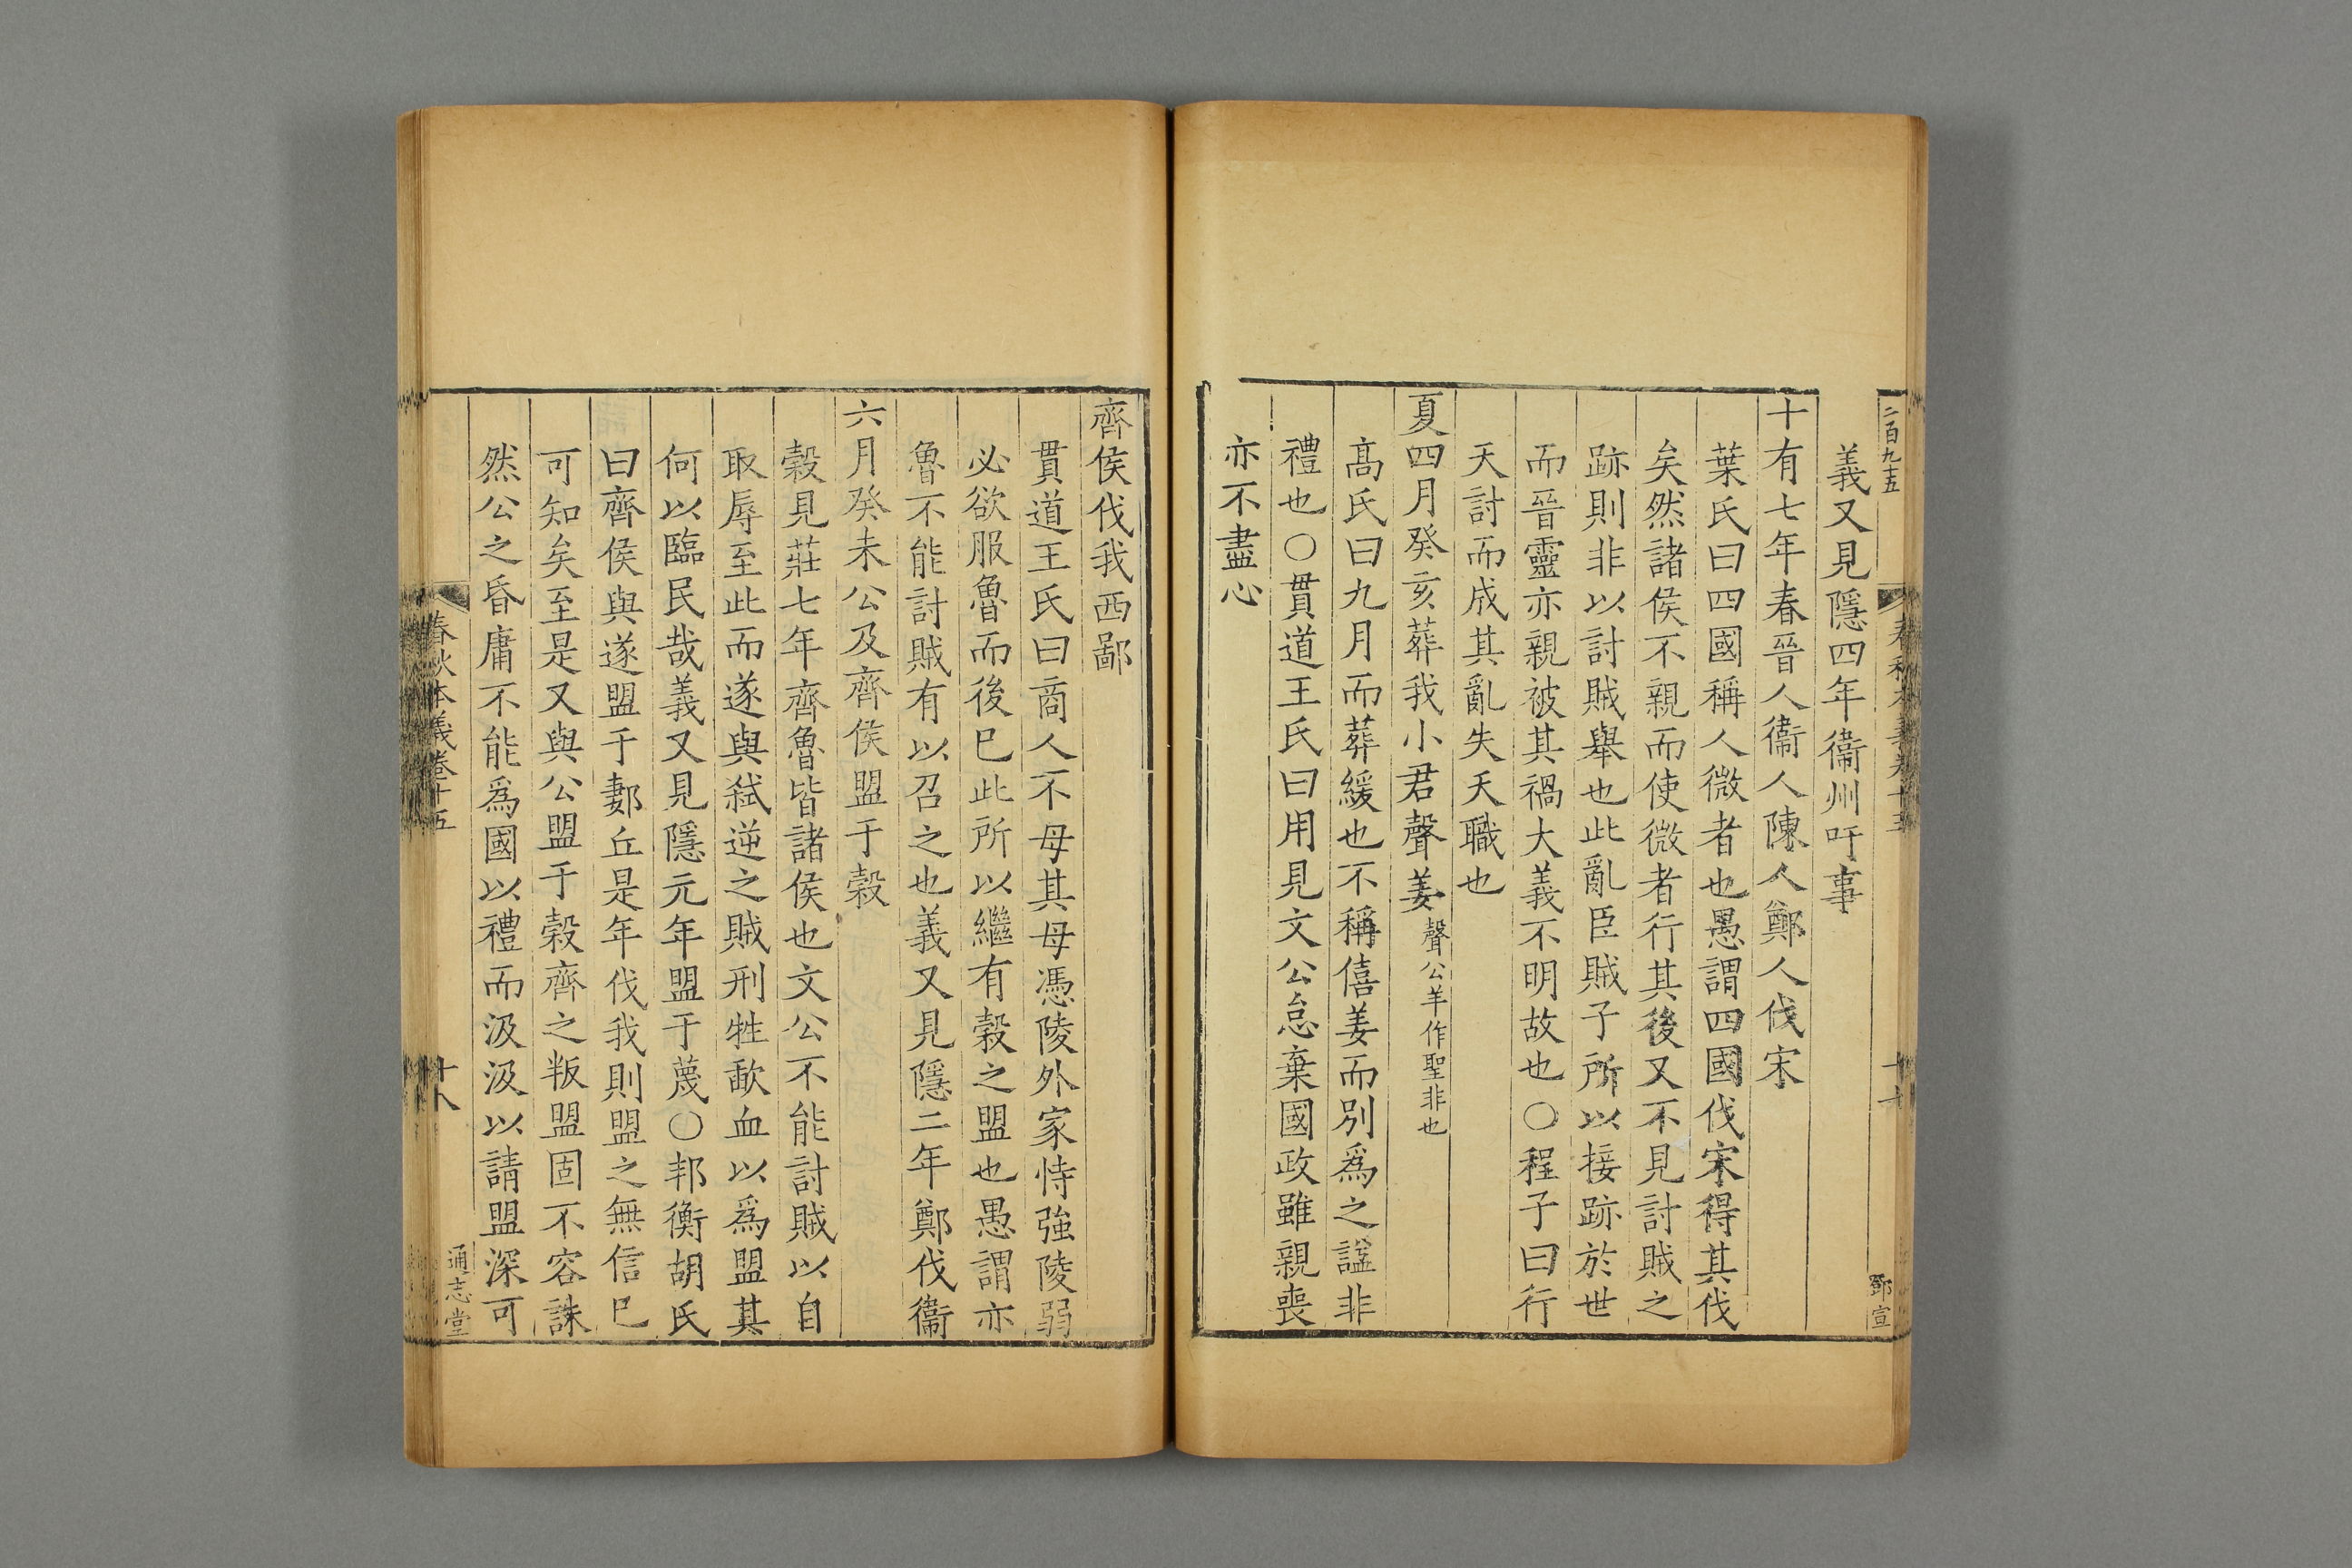 二百九十五
春秋本義卷十五
鄧宣
義又見隱四年衞州吁事
十有七年春晉人衞人陳人鄭人伐宋
葉氏曰四國稱人微者也愚謂四國伐宋得其伐
矣然諸侯不親而使微者行其後又不見討賊之
跡則非以討賊舉也此亂臣賊子所以接跡於世
而晉靈亦親被其禍大義不明故也○程子曰行
天討而成其亂失天職也
夏四月癸亥葬我小君聲姜聲公羊作聖非也
髙氏曰九月而葬緩也不稱僖姜而別爲之諡非
禮也○貫道王氏曰用見文公怠棄國政雖親喪
亦不盡心
齊侯伐我西鄙
貫道王氏曰商人不母其母憑陵外家恃強陵弱
必欲服魯而後已此所以繼有榖之盟也愚謂亦
魯不能討賊有以召之也義又見隱二年鄭伐衞
六月癸未公及齊侯盟于榖
榖見莊七年齊魯皆諸侯也文公不能討賊以自
取辱至此而遂與弑逆之賊刑牲歃血以爲盟其
何以臨民哉義又見隱元年盟于蔑○邦衡胡氏
曰齊侯與遂盟于郪丘是年伐我則盟之無信已
可知矣至是又與公盟于榖齊之叛盟固不容誅
然公之昏庸不能爲國以禮而汲汲以請盟深可
春秋本義卷十五
十八
通志堂